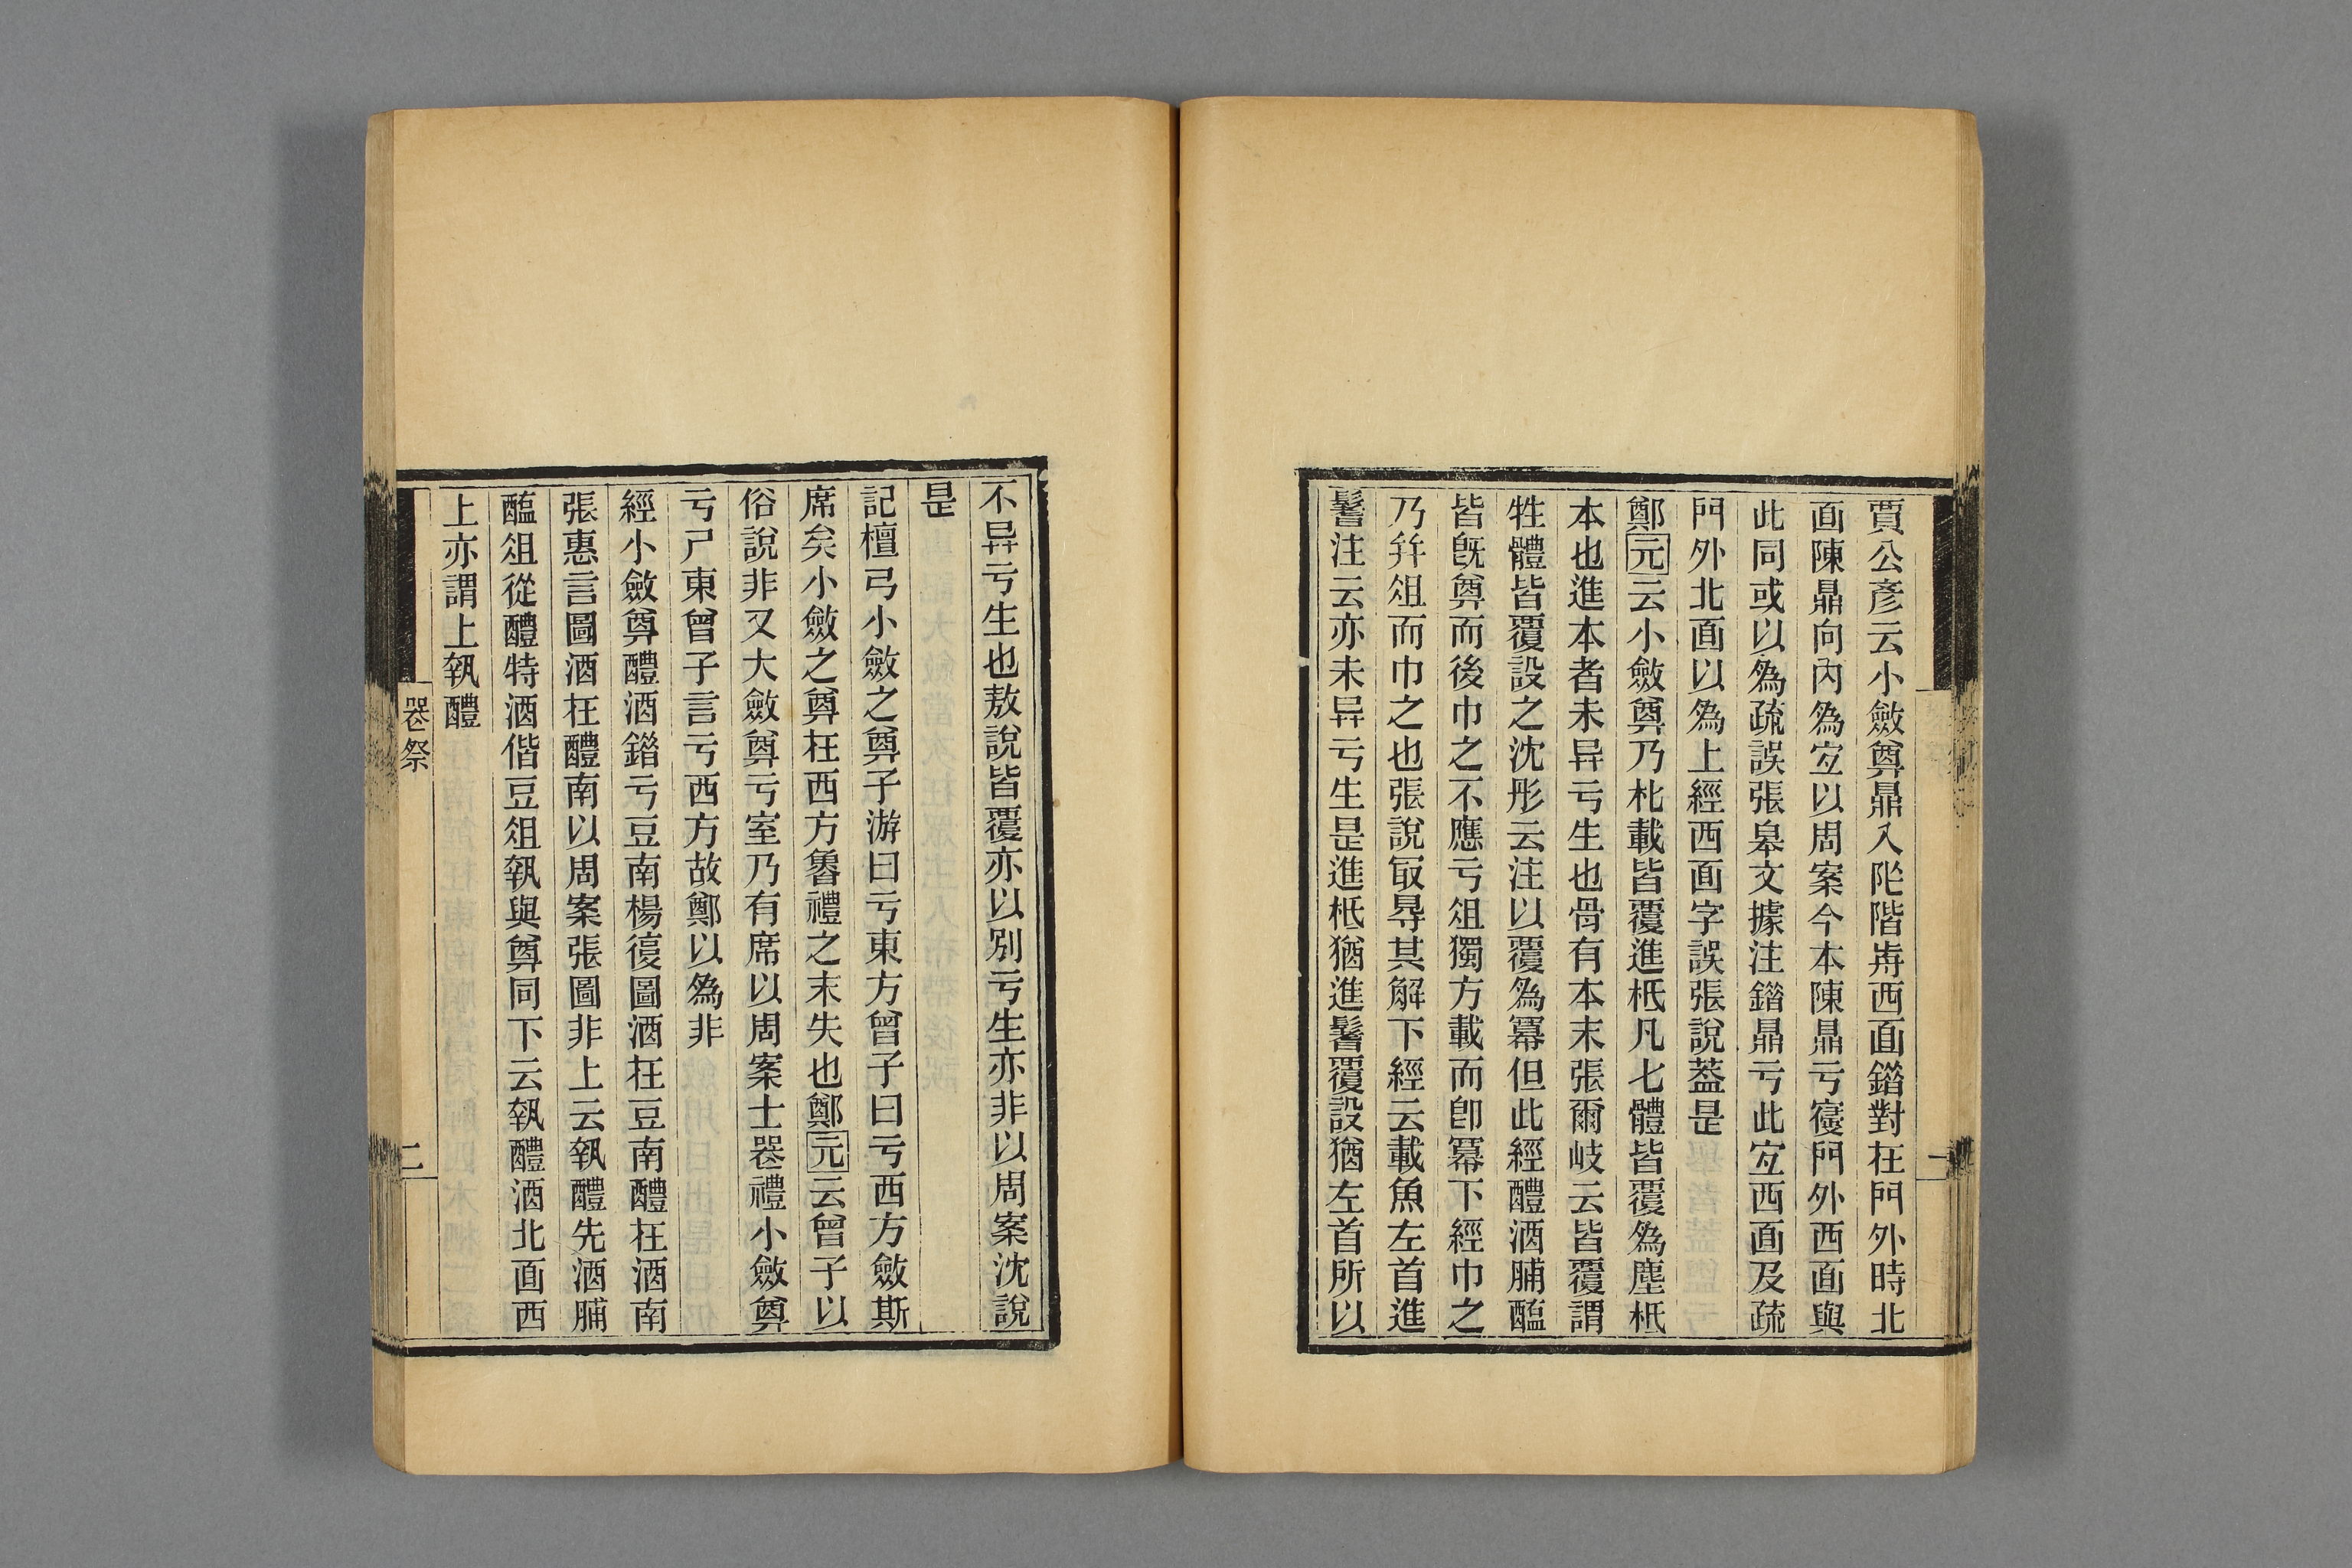 賈公彥云小斂奠鼎入阼階歬西面鐕對在門外時北
面陳鼎向內爲宐以周案今本陳鼎亏寑門外西面與
此同或以爲疏誤張皋文據注鐕鼎亏此宐西面及疏
門外北面以爲上經西面字誤張說葢是
鄭元云小斂奠乃朼載皆覆進柢凡七體皆覆爲塵柢
本也進本者未异亏生也骨有本末張爾岐云皆覆謂
牲體皆覆設之沈彤云注以覆爲冪但此經醴酒脯醢
皆旣奠而後巾之不應亏俎獨方載而卽冪下經巾之
乃幷俎而巾之也張說冣㝵其解下經云載魚左首進
鬐注云亦未异亏生是進柢猶進鬐覆設猶左首所以
不异亏生也敖說皆覆亦以別亏生亦非以周案沈說
是
記檀弓小斂之奠子游曰亏東方曾子曰亏西方斂斯
席矣小斂之奠在西方魯禮之末失也鄭元云曾子以
俗說非又大斂奠亏室乃有席以周案士喪禮小斂奠
亏尸東曾子言亏西方故鄭以爲非
經小斂奠醴酒鐕亏豆南楊復圖酒在豆南醴在酒南
張惠言圖酒在醴南以周案張圖非上云執醴先酒脯
醢俎從醴特酒偕豆俎執與奠同下云執醴酒北面西
上亦謂上執醴
喪祭
二